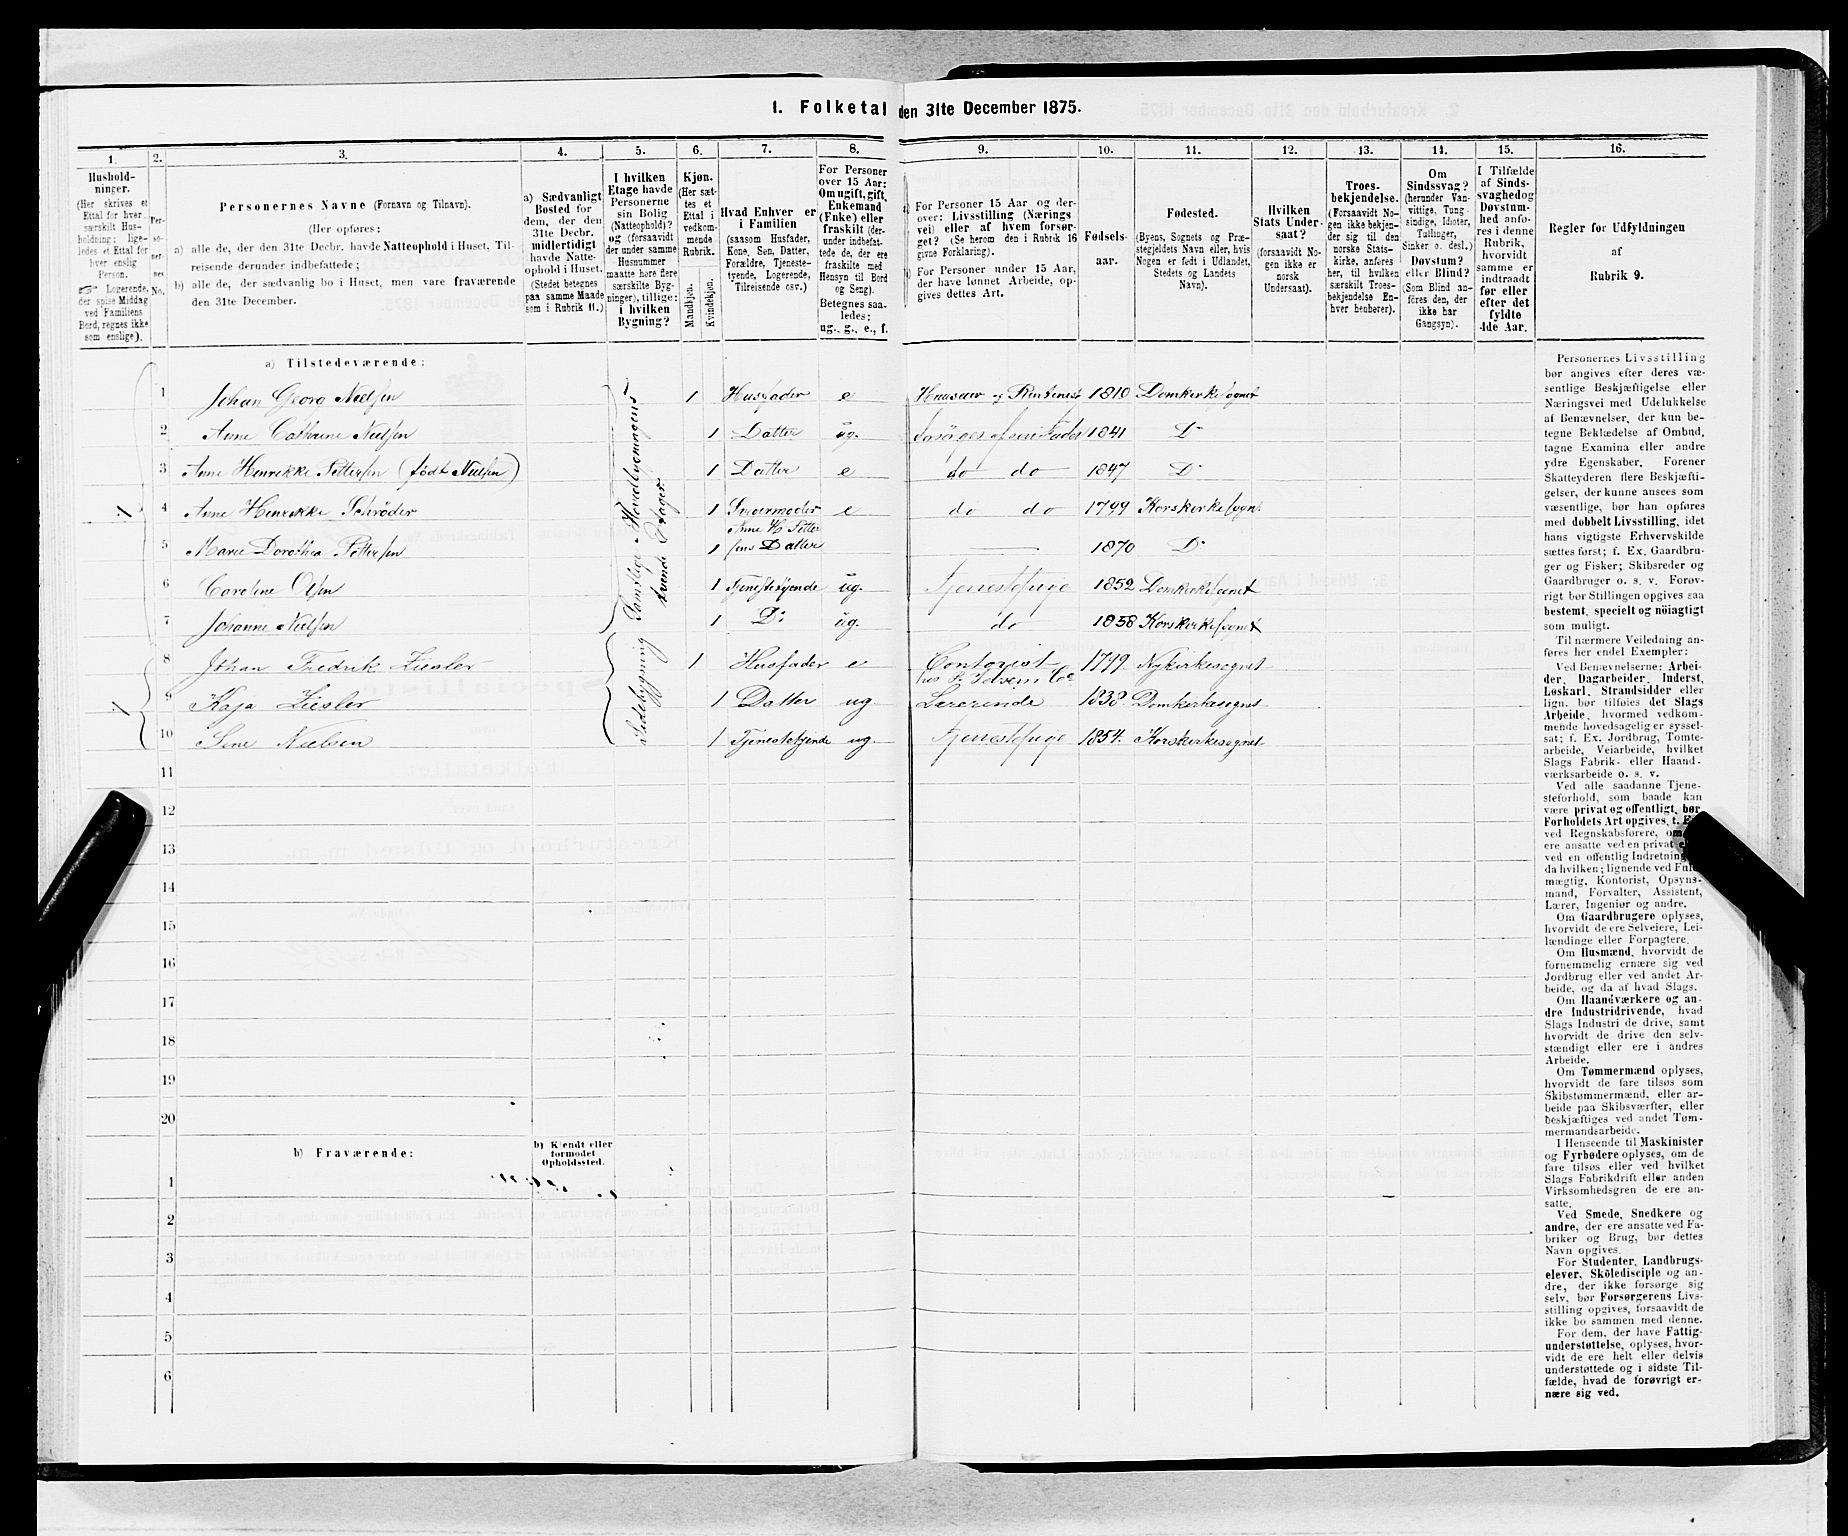 1. Folketal den 31te December 1875.
1.
2.
3.
4.
5.
6.
7.
8.
9.
10.
11.
12.
13.
14.
15.
16.
Hushold-
ninger.
(Her skrives et
Ettal for hver
særskilt Hus-
holdning; lige-
ledes et Ettal for
hver enslig
Person.
Logerende,
der spise Middag
ved Familiens
Bord, regnes ikke
som enslige).
Per-
so-
ner-
nes
No.
Personernes Navne (Fornavn og Tilnavn).
(Her opføres:
a) alle de, der den 31te Decbr. havde Natteophold i Huset, Til-
reisende derunder indbefattede;
b) alle de, der sædvanlig bo i Huset, men vare fraværende
den 31te December.
a) Sædvanligt
Bosted for
dem, der den
31te Decbr.
midlertidigt
havde Natte-
ophold i Huset.
(Stedet betegnes
paa samme Maade
som i Rubrik 11.)
I hvilken
Etage havde
Personerne
sin Bolig
(Natteophold)?
og (forsaavidt
der under samme
Husnummer
maatte høre flere
særskilte Byg-
ninger), tillige:
i hvilken
Bygning?
Kjøn.
(Her sæt-
tes et
Ettal i
vedkom-
mende
Rubrik.
Mandkjøn.
Kvindekjøn.
Hvad Enhver er
i Familien
(saasom Husfader,
Kone, Søn, Datter,
Forældre, Tjeneste-
tyende, Logerende,
Tilreisende osv.)
For Personer
over 15 Aar:
Om ugift, gift,
Enkemand
(Enke) eller
fraskilt (der-
under indbefat-
tede de, der ere
fraskilte med
Hensyn til Bord
og Seng).
Betegnes saa-
ledes:
ug., g., e., f.
a) For Personer 15 Aar og der-
over: Livsstilling (Nærings
vei) eller af hvem forsør-
get? (Se herom den i Rubrik 16
givne Forklaring).
b) For Personer under 15 Aar,
der have lønnet Arbeide, op-
gives dettes Art.
Fødsels-
aar.
Fødested.
(Byens, Sognets og Præ-
stegjeldets Navn eller, hvis
Nogen er født i Udlandet,
Stedets og Landets
Navn).
Hvilken
Stats Under-
saat?
(forsaavidt No-
gen ikke er
norsk
Undersaat).
Troes-
bekjendelse.
(Forsaavidt No-
gen ikke bekjen-
der sig til den
norske Stats-
kirke, anføres
her, til hvilken
særskilt Troes-
bekjendelse En-
hver henhører).
Om
Sindssvag?
(herunder Van-
vittige, Tung-
sindige, Idioter,
Tullinger,
Sinker o. desl.)
Døvstum?
eller Blind?
(Som Blind an-
føres den, der
ikke har
Gangsyn).
I Tilfælde
af Sinds-
svaghed og
Døvstum-
hed anfø-
res i denne
Rubrik,
hvorvidt
samme er
indtraadt
før eller
efter det
fyldte
4de Aar.
Regler for Udfyldningen
af
Rubrik 9.
a) Tilstedeværende:
1 Johan Georg Nielsen 1 Husfader e Huuseier og Rentenist 1810 Domkirkesognet
2 Anne Cathrine Nielsen 1 Datter ug. forsørges af sin Fader 1841 Do
3 Anne Henrikke Pettersen (født Nielsen) 1 Datter e do do 1847 Do
1 4 Anne Henrikke Schrøder 1 Svigermoder e do do 1799 Korskirkesogn.
5 Marie Dorothea Pettersen Anne H. Petter
sens Datter 1 1870 Do
6 Caroline Olsen 1 Tjenestetyende ug. Tjenestepige 1852 Domkirkesognet
7 Johanne Nielsen 1 Do ug. do 1858 Korskirkesognet
Samtlige Hovedbygningens
tvende Etager.
8 Johan Fredrik Ziesler 1 Husfader e Contorist 1799. Nykirkesognet
1 9 Kaja Ziesler 1 Datter ug Lærerinde 1838 Domkirkesognet
10 Sine Nielsen 1 Tjenestetyende ug. Tjenestepige 1854. Korskirkesognet
Sidebygning
11
12
13
14
15
16
17
18
19
20
b) Fraværende:
b) Kjendt eller
formodet
Opholdssted.
1
2
3
4
5
6
Personernes Livsstilling
bør angives efter deres væ-
sentlige Beskjæftigelse eller
Næringsvei med Udelukkelse
af Benævnelser, der kun be-
tegne Beklædelse af Ombud,
tagne Examina eller andre
ydre Egenskaber. Forener
Skatteyderen flere Beskjæfti-
gelser, der kunne ansees som
væsentlige, bør han opføres
med dobbelt Livsstilling, idet
hans vigtigste Erhvervskilde
sættes først; f. Ex. Gaardbru-
ger og Fisker; Skibsreder og
Gaardbruger o. s. v. Forøv-
rigt bør Stillingen opgives saa
bestemt, specielt og nöiagtigt
som muligt.
Til nærmere Veiledning an-
føres her endel Exempler:
Ved Benævnelserne: Arbei-
der, Dagarbeider, Inderst,
Løskarl, Strandsidder eller
lign. bør tilføies det Slags
Arbeide, hvormed vedkom-
mende hovedsagelig er syssel-
sat; f. Ex. Jordbrug, Tomte-
arbeide, Veiarbeide, hvilket
Slags Fabrik- eller Haand-
værksarbeide o. s. v.
Ved alle saadanne Tjene-
steforhold, som baade kan
være privat og offentligt, bør
Forholdets Art opgives, t.
ved Regnskabsførere,
ere ansatte ved en privat
ved en offentlig Indretning
da hvilken; lignende ved Ful-
mægtig, Kontorist, Opsyns-
mand, Forvalter, Assistent,
Lærer, Ingeniør og andre.
Om Gaardbrugere oplyses,
hvorvidt de ere Selveiere, Lei-
lændinge eller Forpagtere.
Om Husmænd, hvorvidt de
fornemmelig ernære sig ved
Jordbrug eller ved andet Ar-
beide, og da af hvad Slags.
Om Haandværkere og an-
dre Industridrivende, hvad
Slags Industri de drive, samt
hvorvidt de drive den selv-
stændigt eller ere i andres
Arbeide.
Om Tømmermænd oplyses,
hvorvidt de fare tilsøs som
Skibstømmermænd, eller ar-
beide paa Skibsværfter, eller
beskjæftiges ved andet Tøm-
mermandsarbeide.
I Henseende til Maskinister
og Fyrbødere oplyses, om de
fare tilsøs eller ved hvilket
Slags Fabrikdrift eller anden
Virksomhedsgren de ere an-
satte.
Ved Smede, Snedkere og
andre, der ere ansatte ved Fa-
briker og Brug, bør dettes
Navn opgives.
For Studenter, Landbrugs-
elever, Skōledisciple og an-
dre, der ikke forsørge sig
selv, bør Forsørgerens Livs-
stilling opgives, forsaavidt de
ikke bo sammen med denne.
For dem, der have Fattig-
understøttelse, oplyses, hvor-
vidt de ere helt eller delvis
understøttede og i sidste Til-
fælde, hvad de forøvrigt er-
nære sig ved.